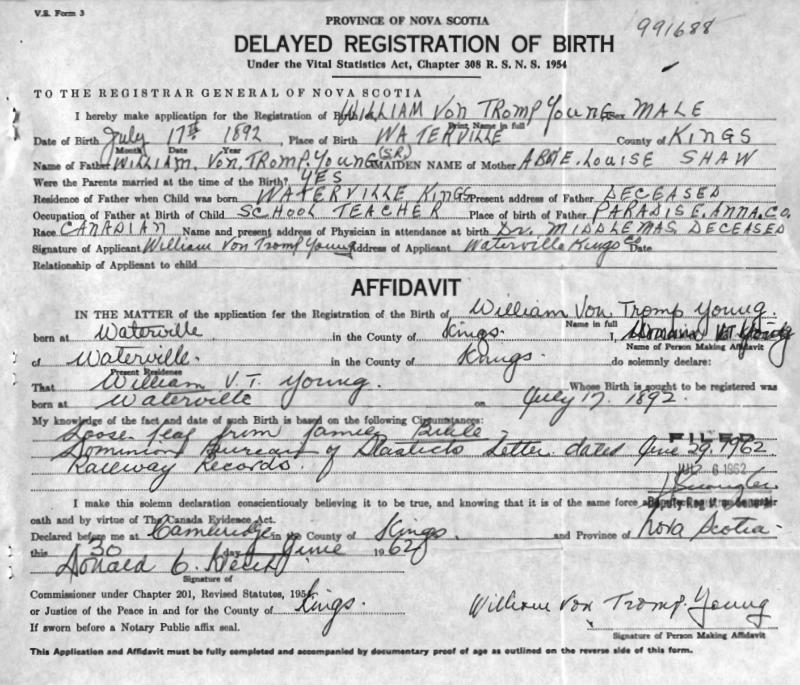 V.S. Form 3
PROVINCE OF NOVA SCOTIA
991688
DELAYED REGISTRATION OF BIRTH
Under the Vital Statistics Act, Chapter 308 R. S. N. S. 1954
TO THE REGISTRAR GENERAL OF NOVA SCOTIA
I hereby make application for the Registration of Birth of WILLIAM VON TROMP YOUNG Sex MALE
Print Name in full
Date of Birth July 17th 1892, Place of Birth WATERVILLE County of KINGS
Month Date Year
Name of Father WILLIAM. VON. TROMP. YOUNG (SR.) MAIDEN NAME of Mother ABBIE. LOUISE SHAW
Were the Parents married at the time of the Birth? YES
Residence of Father when Child was born WATERVILLE KINGS Present address of Father DECEASED
Occupation of Father at Birth of Child SCHOOL TEACHER Place of birth of Father PARADISE. ANNA. CO.
Race CANADIAN Name and present address of Physician in attendance at birth Dr. MIDDLEMAS DECEASED
Signature of Applicant William Von Tromp Young Address of Applicant Waterville Kings Co Date
Relationship of Applicant to child
AFFIDAVIT
IN THE MATTER of the application for the Registration of the Birth of William Von. Tromp Young.
Name in full
born at Waterville. in the County of Kings. I, William V.T. Young
Name of Person Making Affidavit
of Waterville. in the County of Kings. do solemnly declare:
Present Residence
That William V. T. Young. Whose Birth is sought to be registered was
born at Waterville on July 17. 1892.
My knowledge of the fact and date of such Birth is based on the following Circumstances:
Loose leaf from family Bible
FILED
Dominion Bureau of Stasticts Letter dated June 29. 1962
Railway Records.
6 1962
I make this solemn declaration conscientiously believing it to be true, and knowing that it is of the same force
Deputy Registrar General
oath and by virtue of The Canada Evidence Act.
Declared before me at Cambridge in the County of Kings. and Province of Nova Scotia
this 30 day of June 1962
Donald C.
Signature of
Commissioner under Chapter 201, Revised Statutes, 1954
or Justice of the Peace in and for the County of Kings.
William Von Tromp. Young
If sworn before a Notary Public affix seal.
Signature of Person Making Affidavit
This Application and Affidavit must be fully completed and accompanied by documentary proof of age as outlined on the reverse side of this form.